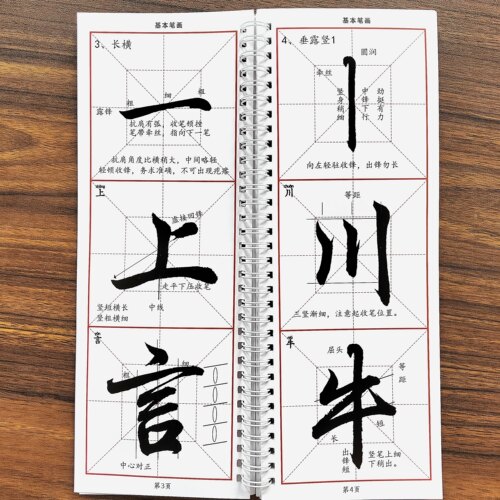 基本笔画
3、长横
粗
细
粗
露锋
抗肩有张，收笔顿挫
笔带牵丝，指向下一笔
抗肩角度比横稍大，中间略轻
轻顿收锋，务求准确，不可出现疙瘩
上
上
虚接回锋
走平下压收笔
竖短横长
竖粗横细
中线
言
粗
细
言
中心对正
第3页
基本笔画
4、垂露竖1
圆润
牵丝
竖身稍细
中锋下行
劲挺有力
向左轻驻收锋，出锋勿长
川
等距
川
三竖渐细，注意起收笔位置。
牛
屈头
等距
牛
短
长
出锋短
竖笔上细
下稍出。
第4页